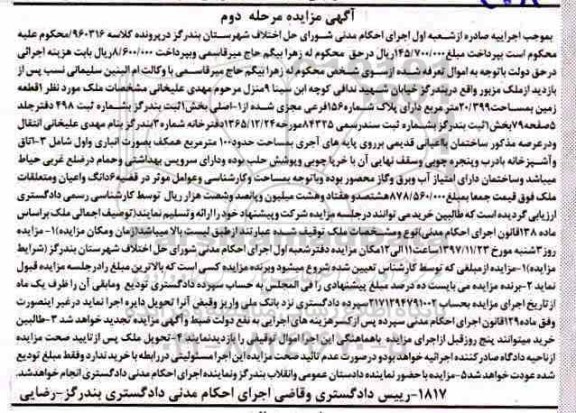 آگهی مزایده مرحله دوم
بموجب اجراییه صادره ازشعبه اول اجرای احکام مدنی شورای حل اختلاف شهرستان بندرگز درپرونده کلاسه ۹۶۰۳۱۶/محکوم علیه
محکوم است بپرداخت مبلغ۱۴۵/۷۰۰/۰۰۰ریال درحق محکوم له زهرا بیگم حاج میرقاسمی وبپرداخت ۸/۶۰۰/۰۰۰ریال بابت هزینه اجرائی
درحق دولت باتوجه به اموال تعرفه شده ازسوی شخص محکوم له زهرا بیگم حاج میرقاسمی با وکالت ام البنین سلیمانی نسب پس از
بازدید ازملک مزبور واقع دربندرگز خیابان شهید ندافی کوچه ابن سینا ۹منزل مرحوم مهدی علیخانی مشخصات ملک مورد نظر ۱قطعه
زمین بمساحت۲۰/۳۹۹متر مربع دارای پلاک شماره۱۵۶فرعی مجزی شده از۱-اصلی بخش۱ثبت بندرگز بشماره ثبت ۴۹۸ دفترجلد
۵صفحه۷۹بخش۱ثبت بندرگز بشماره ثبت سندرسمی ۸۴۳۲۵مورخه۱۳۶۵/۱۲/۲۴دفترخانه شماره۳بندرگز بنام مهدی علیخانی انتقال
ودرعرصه مذکور ساختمان باعیانی قدیمی برروی پایه های آجری بمساحت حدود۱۰۰ مترمربع همکف بصورت انباری واول شامل ۳-اتاق
وآشپزخانه بادرب وپنجره چوبی وسقف نهایی آن با خرپا چوبی وپوشش حلب بوده ودارای سرویس بهداشتی وحمام درضلع غربی حیاط
میباشد وساختمان دارای امتیاز آب وبرق وگاز محصور بوده وباتوجه بمساحت وکارشناسی وعوامل موثر در قضیه۶دانگ واعیان ومتعلقات
ملک فوق قیمت جمعا بمبلغ۸۷۸/۵۶۰/۰۰۰هشتصدو هفتاد وهشت میلیون وپانصد وشصت هزار ریال توسط کارشناسی رسمی دادگستری
ارزیابی گردیده است که طالبین خرید می توانند درجلسه مزایده شرکت وپیشنهاد خود را ارائه وتسلیم نمایند(توصیف اجمالی ملک براساس
ماده ۱۳۸قانون اجرای احکام مدنی)نوع ومشخصات ملک توقیف شده عبارتند ازطبق لیست بالا میباشد(زمان ومکان مزایده)۱- مزایده
روز۳شنبه مورخ ۱۳۹۷/۱۱/۲۳ساعت۱۱الی۱۲مکان مزایده دفترشعبه اول اجرای احکام مدنی شورای حل اختلاف شهرستان بندرگز (شرایط
مزایده)۱-مزایده ازمبلغی که توسط کارشناس تعیین شده شروع میشود وبرنده مزایده کسی است که بالاترین مبلغ رادرجلسه مزایده قبول
نماید ۲-برنده مزایده می بایست ده درصد مبلغ پیشنهادی را فی المجلس به حساب سپرده دادگستری تودیع ومابقی آن را ظرف یک ماه
از تاریخ اجرای مزایده بحساب ۲۱۷۱۲۹۴۷۹۱۰۰۲سپرده دادگستری نزد بانک ملی واریز وقبض آنرا تحویل دایره اجرا نماید درغیر اینصورت
وفق ماده۱۲۹قانون اجرای احکام مدنی سپرده پس ازکسرهزینه های اجرایی به نفع دولت ضبط وآگهی مزایده تجدید خواهد شد ۳-طالبین
خرید میتوانند پنج روزقبل ازاجرای مزایده باهماهنگی این اجرا اموال توقیفی را بازدیدنمایند ۴-تحویل ملک پس ازتایید صحت مزایده
ازناحیه دادگاه صادرکننده اجرائیه خواهد بودو درصورت عدم تائید صحت مزایده این اجرا مسئولیتی دررابطه باخریدندارد وفقط مبلغ تودیع
شده عودت خواهد شد۵-مزایده با حضور نماینده دادستان عمومی وانقلاب بندرگز ونماینده اجرای احکام مدنی دادگستری انجام خواهدشد.
۱۸۱۷-رییس دادگستری وقاضی اجرای احکام مدنی دادگستری بندرگز-رضایی